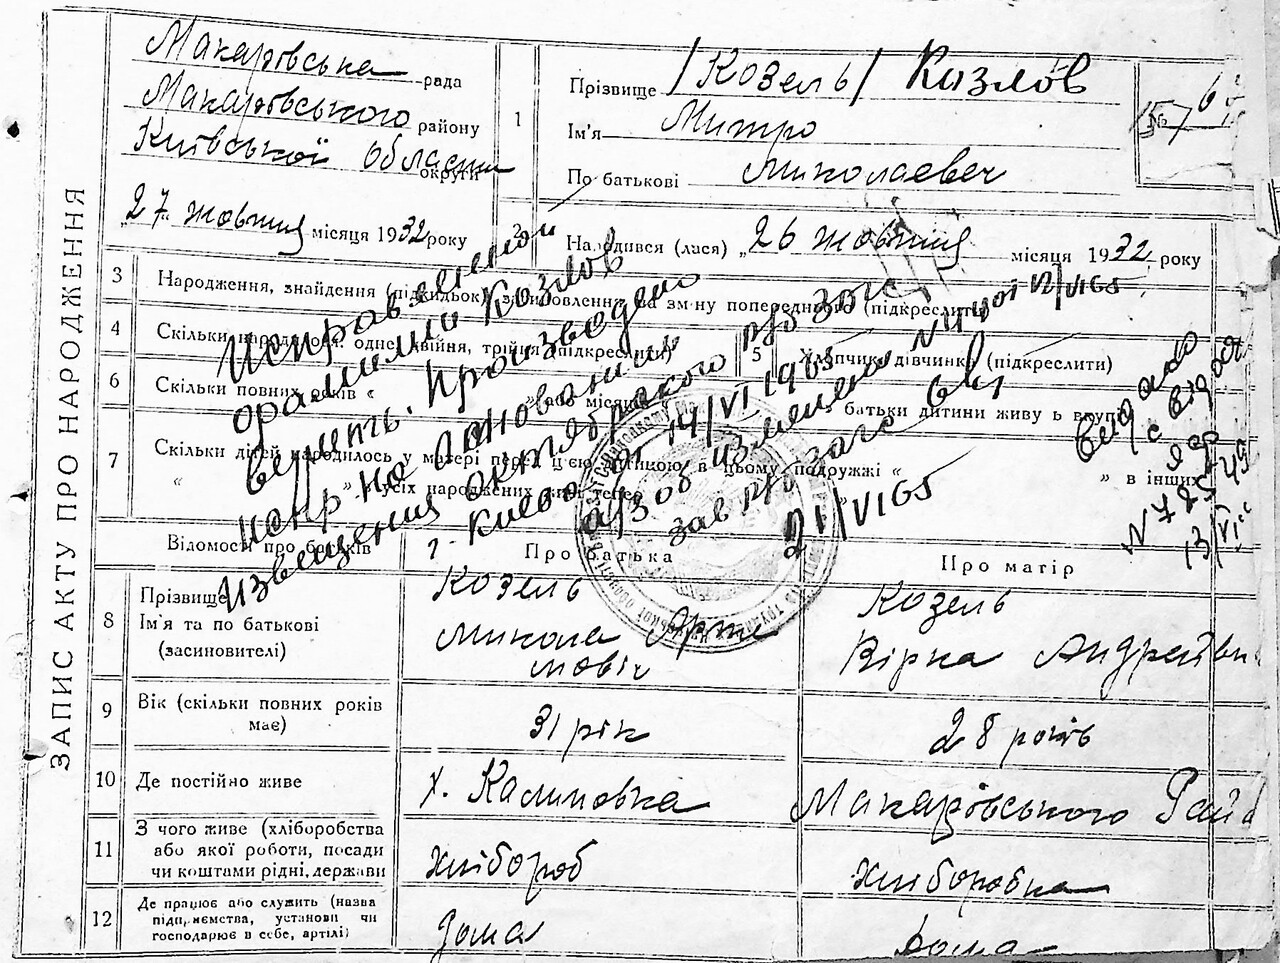 ЗАПИС АКТУ ПРО НАРОДЖЕННЯ
Макарівська рада
Макарівського району
Київської области округи
„27" жовтня місяця 1932 року
1
Прізвище /Козель/ Козлов
Ім'я Митро
По батькові Миколаевич
№
2
Народився (лася) „26 жовтня місяця 1932 року
3 Народження, знайдення (підкидьок) заповлення на зміну попереднього (підкреслити)
4 Скільки народилося: одне, двійня, трійня (підкреслити)
5 Хлопчик, дівчинка (підкреслити)
6 Скільки повних років « або місяців батьки дитини живуть вкупі
7 Скільки дітей народилось у матері перед цією дитиною в цьому подружжі «
« » в усіх народжених живі тепер » в інших
Исправленной
фамилии Козлов
верить. Произведено
испр. на основании
извещения октябрского р/о загс
г. Киева от 14/VI 1965
а/з об изменении
зав р/б загс
21/VI65
Видано
с від
13/VI
Відомості про батьків
Про батька
Про матір
8 Прізвище
Ім'я та по батькові
(засиновителі)
Козель
Микола Арте
мовіч
Козель
Вірка Андреівн
9 Вік (скільки повних років
має)
31 рік
28 років
10 Де постійно живе
х. Калиновка
Макарівського Рай
11 З чого живе (хліборобства
або якої роботи, посади
чи коштами рідні, держави
хлібороб
хлиборобка
12 Де працює або служить (назва
підприємства, установи чи
господарює в себе, артілі)
дома
дома